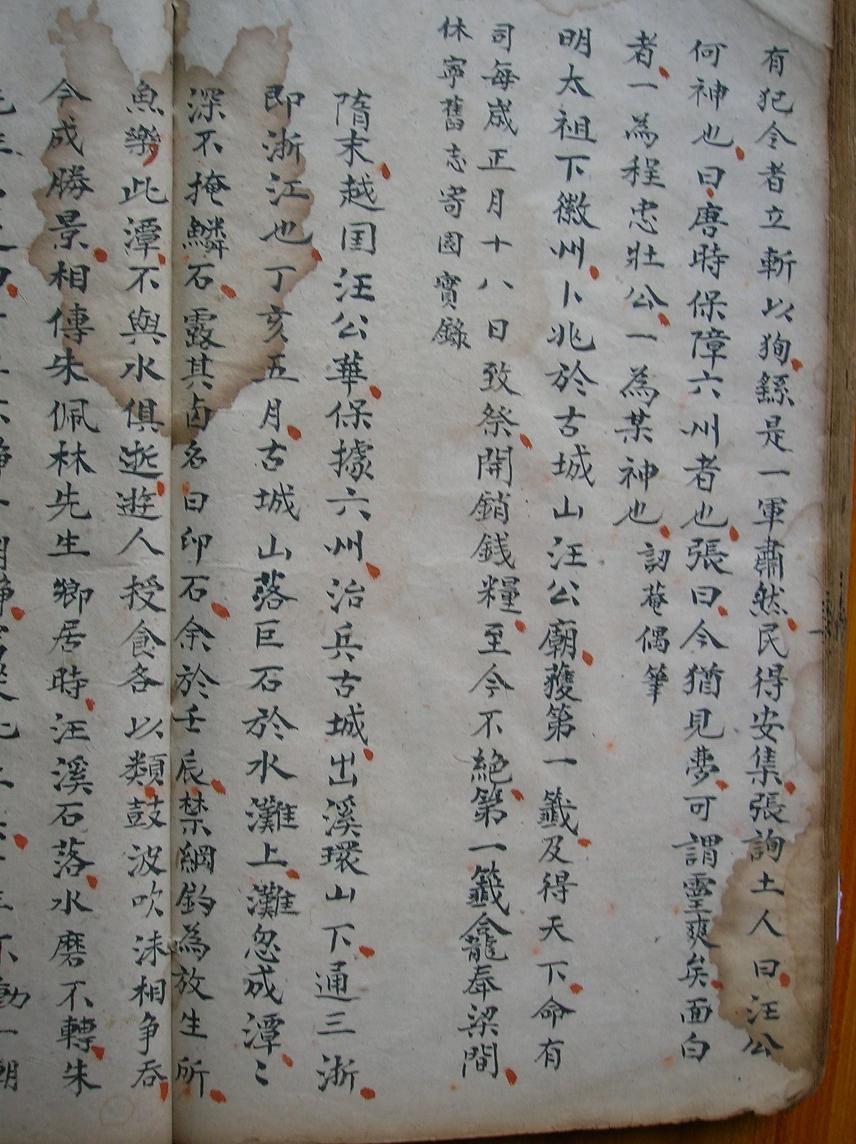 有犯令者立斬以狥繇是一軍肅然民得安集張詢土人曰汪公
何神也曰唐時保障六州者也張曰今猶見夢可謂靈爽矣面白
者一為程忠壯公一為某神也訒菴偶筆
明太祖下徽州卜兆於古城山汪公廟獲第一籤及得天下命有
司每歲正月十八日致祭開銷錢糧至今不絕第一籤龕奉梁間
休寧舊志寄園實錄
隋末越囯汪公華保據六州治兵古城出溪環山下通三浙
即浙江也丁亥五月古城山落巨石於水灘上灘忽成潭〻
深不掩鱗石露其卤名曰印石余於壬辰禁網釣為放生所
魚樂此潭不與水俱逝遊人授食各以類鼓波吹沫相爭吞
今成勝景相傳朱佩林先生鄉居時汪溪石落水磨不轉朱